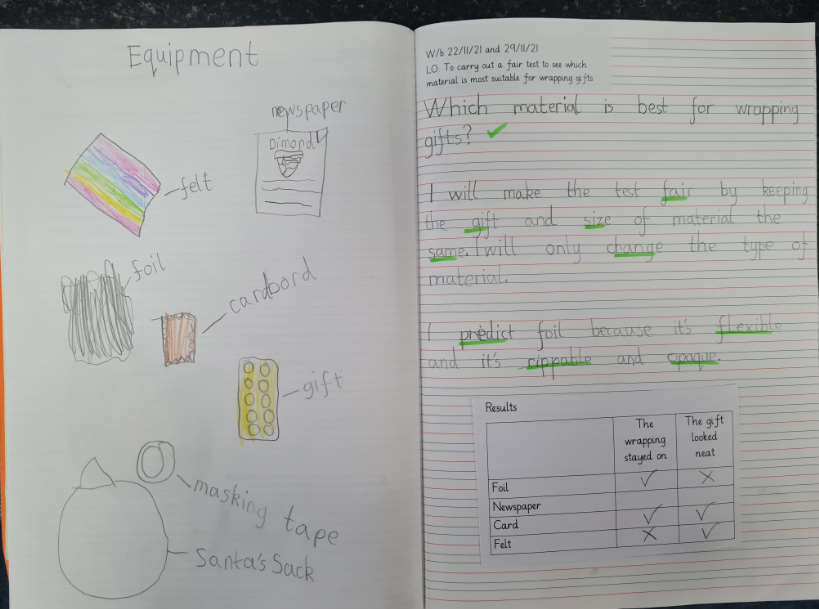 Equipment
newspaper
Dimond
felt
foil
cardbord
gift
masking tape
Santa's Sack
W/b 22/11/21 and 29/11/21
LO: To carry out a fair test to see which
material is most suitable for wrapping gifts
Which material is best for wrapping
gifts?
I will make the test fair by keeping
the gift and size of material the
same. I will only change the type of
material.
I predict foil because it's flexible
and it's rippable and opaque.
Results
The wrapping stayed on The gift looked neat
Foil ✓ ✗
Newspaper
Card ✓ ✓
Felt ✗ ✓